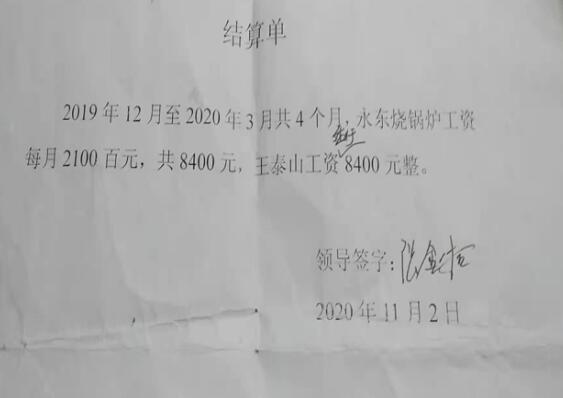 结算单
2019年12月至2020年3月共4个月,永东烧锅炉工资
每月2100百元,共8400元,王泰山工资8400元整。
领导签字:张金
2020年11月2日